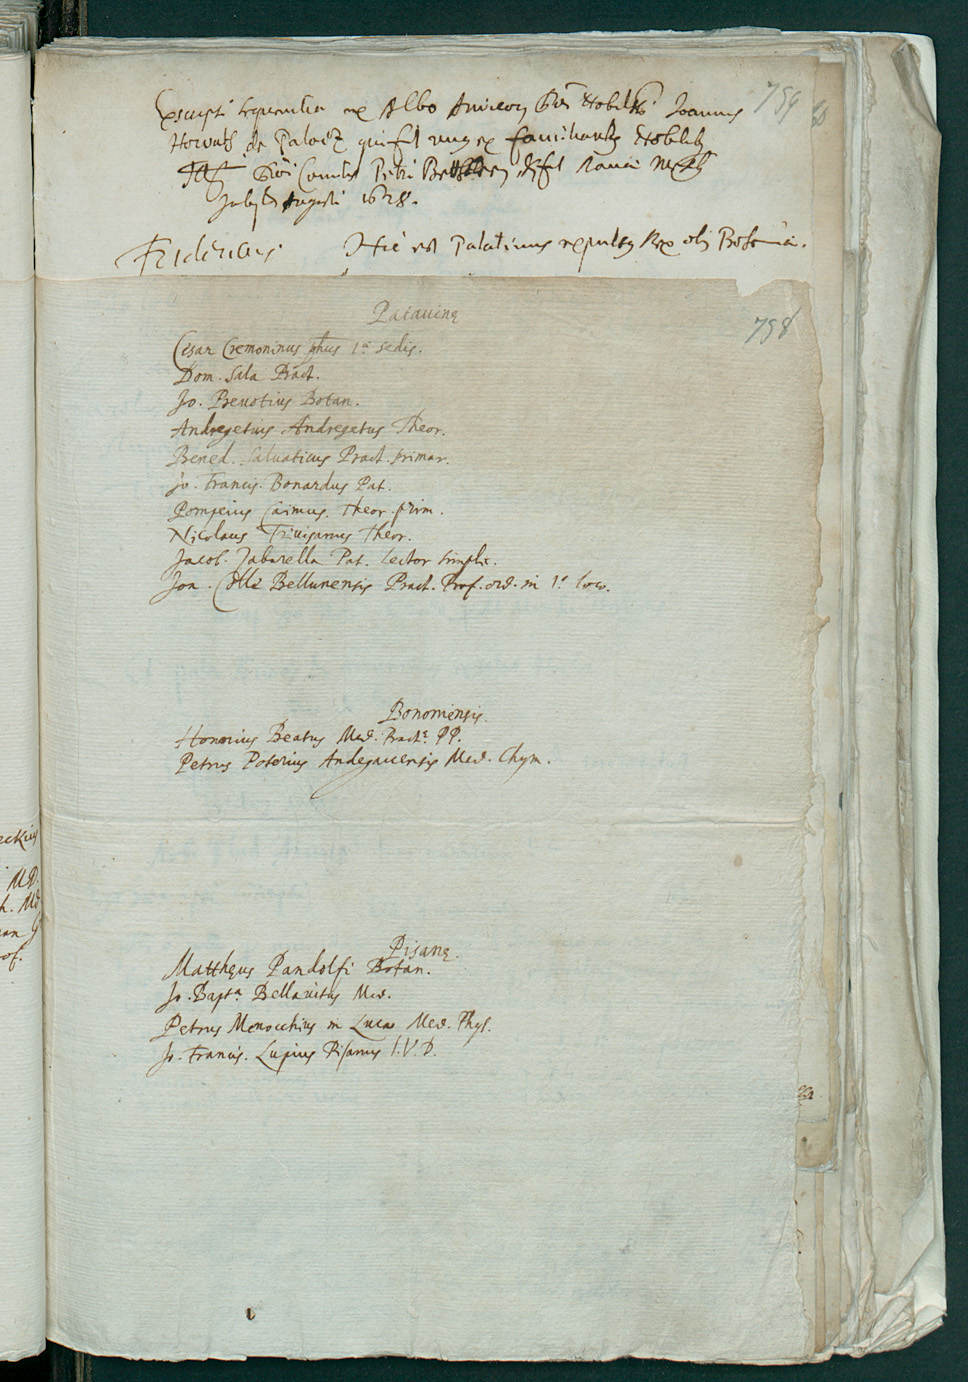 Excerpti sequentia ex Albo Amicorum Gñsi Nobilisq Joannis
Horvath de Palocz qui fuit unus ex familiaribus Nobilib
Gñsi Comitis Petri Bethlen,
Augusti 1628.
Fridericus Hic est Palatinus expulsus Rex olim Bohemiæ.
759
60
758
Patauinę
Cęsar Cremoninus phus 1ę sedis.
Dom. Sala Pract.
Jo. Preuotius Botan.
Andregetius Andregetus Theor.
Bened. Saluaticus Pract. primar.
Jo. Francis. Bonardus Pat.
Pompeius Caimus. Theor. prim.
Nicolaus Triuisanus Theor.
Jacob. Zabarella Pat. Lector simplic.
Jon. Collè Bellunensis Pract. Prof. ord. in 1º loco.
Bononiensis.
Honorius Beatus Med. Practę PP.
Petrus Poterius Andegauensis Med. Chym.
Pisanę.
Matthęus Pandolfi Botan.
Jo. Bapta Bellauitus Med.
Petrus Menocchius in Luca Med. Phys.
Jo. Francis. Lupius Pisanus I.V.D.
eckius
MD.
h. Md
of.